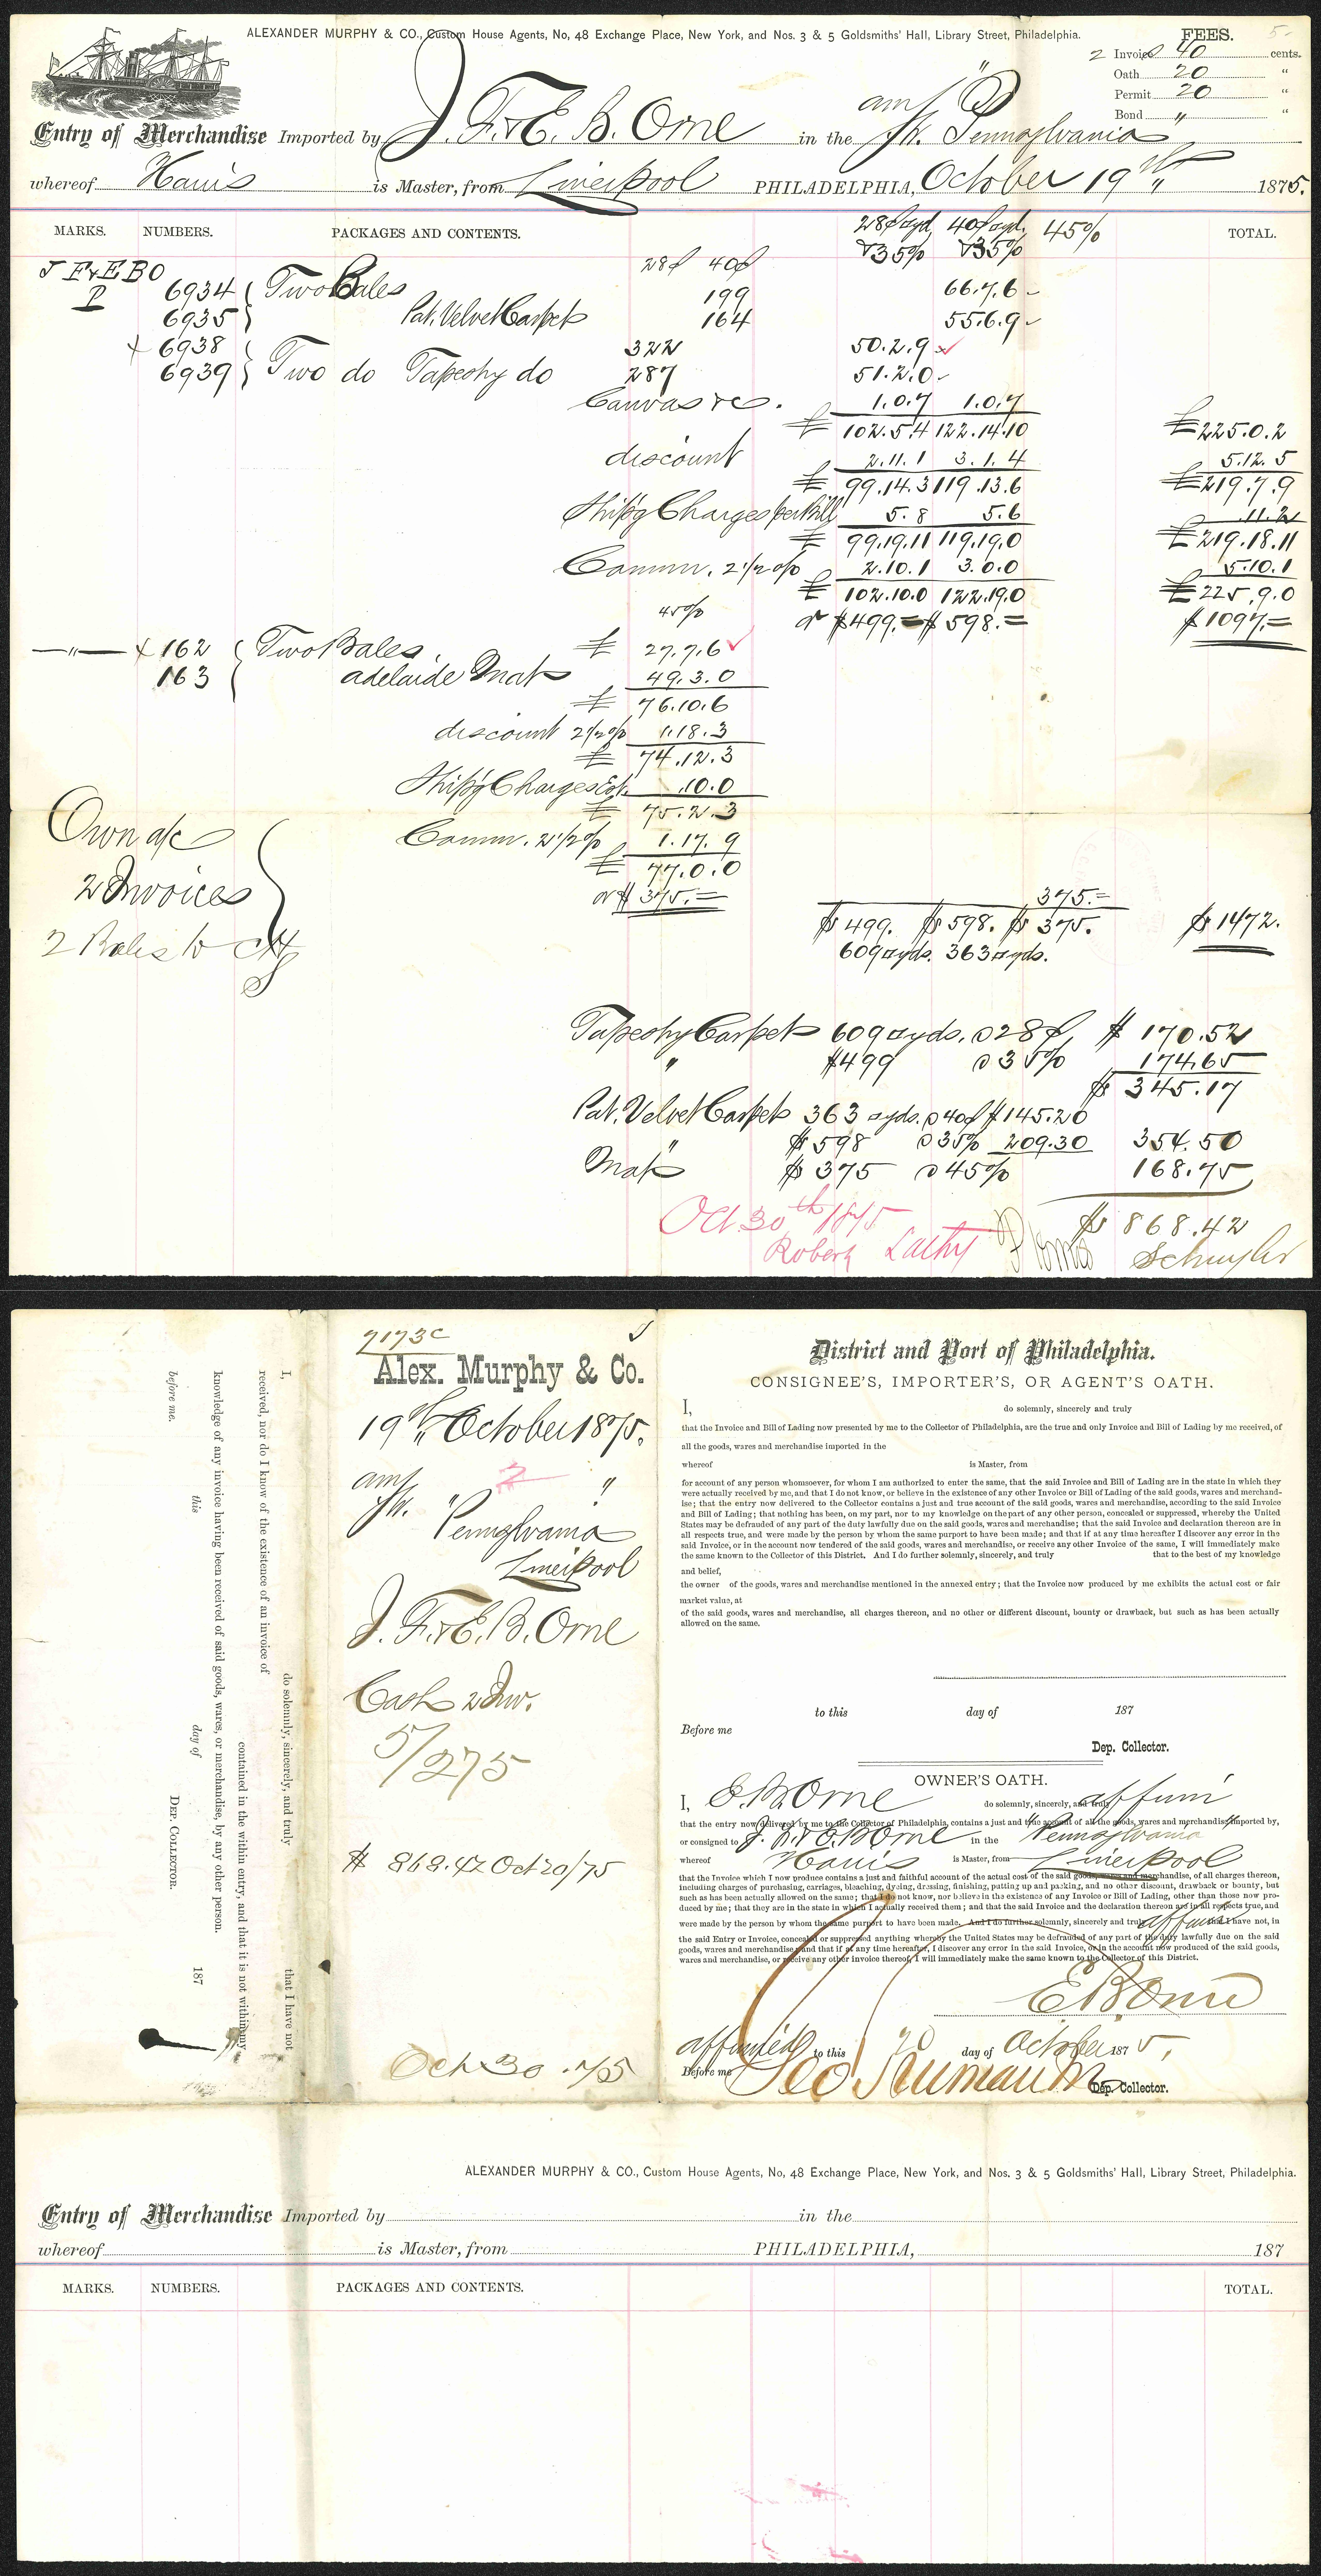 ALEXANDER MURPHY & CO., Custom House Agents, No, 48 Exchange Place, New York, and Nos. 3 & 5 Goldsmiths' Hall, Library Street, Philadelphia.
FEES. 5-
2 Invoices 40 cents.
Oath 20 "
Permit 20 "
Bond " "
Entry of Merchandise Imported by J. F. & E. B. Orne in the am. Str. "Pennsylvania"
whereof Harris is Master, from Liverpool PHILADELPHIA, October 19th " 1875.
MARKS. NUMBERS. PACKAGES AND CONTENTS. 28¢ □yd. & 35% 40¢ □yd. & 35% 45% TOTAL.
J F & E B O 28¢ 40¢
P 6934 Two Bales 199 66.7.6
6935 Pat. Velvet Carpet 164 55.6.9
x 6938 322 50.2.9
6939 Two do Tapestry do 287 51.2.0
Canvas &c. 1.0.7 1.0.7
£ 102.5.4 122.14.10 £225.0.2
discount 2.11.1 3.1.4 5.12.5
£ 99.14.3 119.13.6 £219.7.9
Ship'g Charges per Bill 5.8 5.6 .11.2
£ 99.19.11 119.19.0 £219.18.11
Comm. 2 1/2 % 2.10.1 3.0.0 5.10.1
£ 102.10.0 122.19.0 £225.9.0
45% or $499.= $598.= $1097.=
—"— x 162 Two Bales £ 27.7.6
163 adelaide Mats 49.3.0
£ 76.10.6
discount 2 1/2 % 1.18.3
£ 74.12.3
Ship'g Charges Est. .10.0
£ 75.2.3
Own a/c Comm. 2 1/2 % 1.17.9
£ 77.0.0
2 Invoices or $ 375.= 375.=
$499. $598. $375. $1472.
2 Bales to
609 □yds. 363 □yds.
Tapestry Carpet 609 □yds. @ 28¢ $ 170.52
" $499 @ 35% 174.65
$ 345.17
Pat. Velvet Carpet 363 □yds. @ 40¢ $145.20
" $598 @ 35% 209.30 354.50
Mats $375 @ 45% 168.75
$ 868.42
Oct 30th 1875
Robert Schuyler
I, do solemnly, sincerely, and truly that I have not
received, nor do I know of the existence of an invoice of contained in the within entry, and that it is not within my
knowledge of any invoice having been received of said goods, wares, or merchandise, by any other person.
before me. this day of 187
DEP. COLLECTOR.
7173c
Alex. Murphy & Co.
19th " October 1875.
am. 2 "
Str. "Pennsylvania
Liverpool
J. F. & E. B. Orne
Cash 2 Inv.
5/275
$ 868.42 Oct 20/75
Oct 30 . 75
District and Port of Philadelphia.
CONSIGNEE'S, IMPORTER'S, OR AGENT'S OATH.
I, do solemnly, sincerely and truly
that the Invoice and Bill of Lading now presented by me to the Collector of Philadelphia, are the true and only Invoice and Bill of Lading by me received, of
all the goods, wares and merchandise imported in the
whereof is Master, from
for account of any person whomsoever, for whom I am authorized to enter the same, that the said Invoice and Bill of Lading are in the state in which they
were actually received by me, and that I do not know, or believe in the existence of any other Invoice or Bill of Lading of the said goods, wares and merchand-
ise; that the entry now delivered to the Collector contains a just and true account of the said goods, wares and merchandise, according to the said Invoice
and Bill of Lading; that nothing has been, on my part, nor to my knowledge on the part of any other person, concealed or suppressed, whereby the United
States may be defrauded of any part of the duty lawfully due on the said goods, wares and merchandise; that the said Invoice and declaration thereon are in
all respects true, and were made by the person by whom the same purport to have been made; and that if at any time hereafter I discover any error in the
said Invoice, or in the account now tendered of the said goods, wares and merchandise, or receive any other Invoice of the same, I will immediately make
the same known to the Collector of this District. And I do further solemnly, sincerely, and truly that to the best of my knowledge
and belief,
the owner of the goods, wares and merchandise mentioned in the annexed entry; that the Invoice now produced by me exhibits the actual cost or fair
market value, at
of the said goods, wares and merchandise, all charges thereon, and no other or different discount, bounty or drawback, but such as has been actually
allowed on the same.
to this day of 187
Before me
Dep. Collector.
OWNER'S OATH.
I, E. B. Orne do solemnly, sincerely, and truly affirm
that the entry now delivered by me to the Collector of Philadelphia, contains a just and true account of all the goods, wares and merchandise imported by,
or consigned to J. F. & E. B. Orne in the "Pennsylvania"
whereof Harris is Master, from Liverpool
that the Invoice which I now produce contains a just and faithful account of the actual cost of the said goods, wares and merchandise, of all charges thereon,
including charges of purchasing, carriages, bleaching, dyeing, dressing, finishing, putting up and packing, and no other discount, drawback or bounty, but
such as has been actually allowed on the same; that I do not know, nor believe in the existence of any Invoice or Bill of Lading, other than those now pro-
duced by me; that they are in the state in which I actually received them; and that the said Invoice and the declaration thereon are in all respects true, and
were made by the person by whom the same purport to have been made. And I do further solemnly, sincerely and truly affirm have not, in
the said Entry or Invoice, concealed or suppressed anything whereby the United States may be defrauded of any part of the duty lawfully due on the said
goods, wares and merchandise, and that if at any time hereafter, I discover any error in the said Invoice, or in the account now produced of the said goods,
wares and merchandise, or receive any other invoice thereof, I will immediately make the same known to the Collector of this District.
E B Orne
affirmed to this 20 day of October 1875,
Before me Geo Dep. Collector.
ALEXANDER MURPHY & CO., Custom House Agents, No, 48 Exchange Place, New York, and Nos. 3 & 5 Goldsmiths' Hall, Library Street, Philadelphia.
Entry of Merchandise Imported by in the
whereof is Master, from PHILADELPHIA, 187
MARKS. NUMBERS. PACKAGES AND CONTENTS. TOTAL.